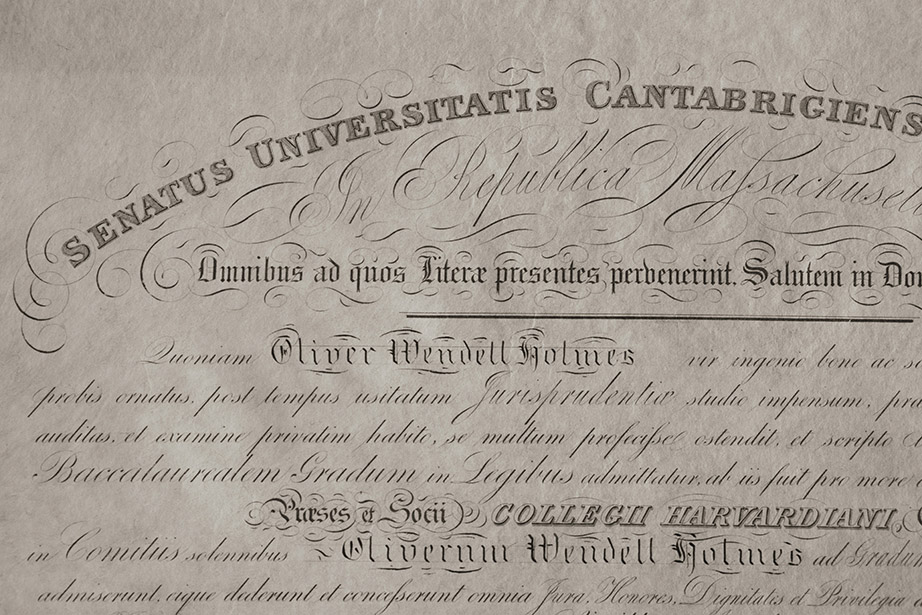 SENATUS UNIVERSITATIS CANTABRIGIENS
In Republica Massachuset
Omnibus ad quos Literæ presentes pervenerint. Salutem in Do
Quoniam Oliver Wendell Holmes vir ingenio bono ac
probis ornatus, post tempus usitatum Jurisprudentiæ studio impensum, præ
auditas, et examine privatim habito, se multum profecisse ostendit, et scripto
Baccalaurealem Gradum in Legibus admittatur, ab iis fuit pro more
Præses et Socii COLLEGII HARVARDIANI,
in Comitiis solennibus Oliverum Wendell Holmes ad Gradum
admiserunt, eique dederunt et concesserunt omnia Jura, Honores, Dignitates et Privilegia